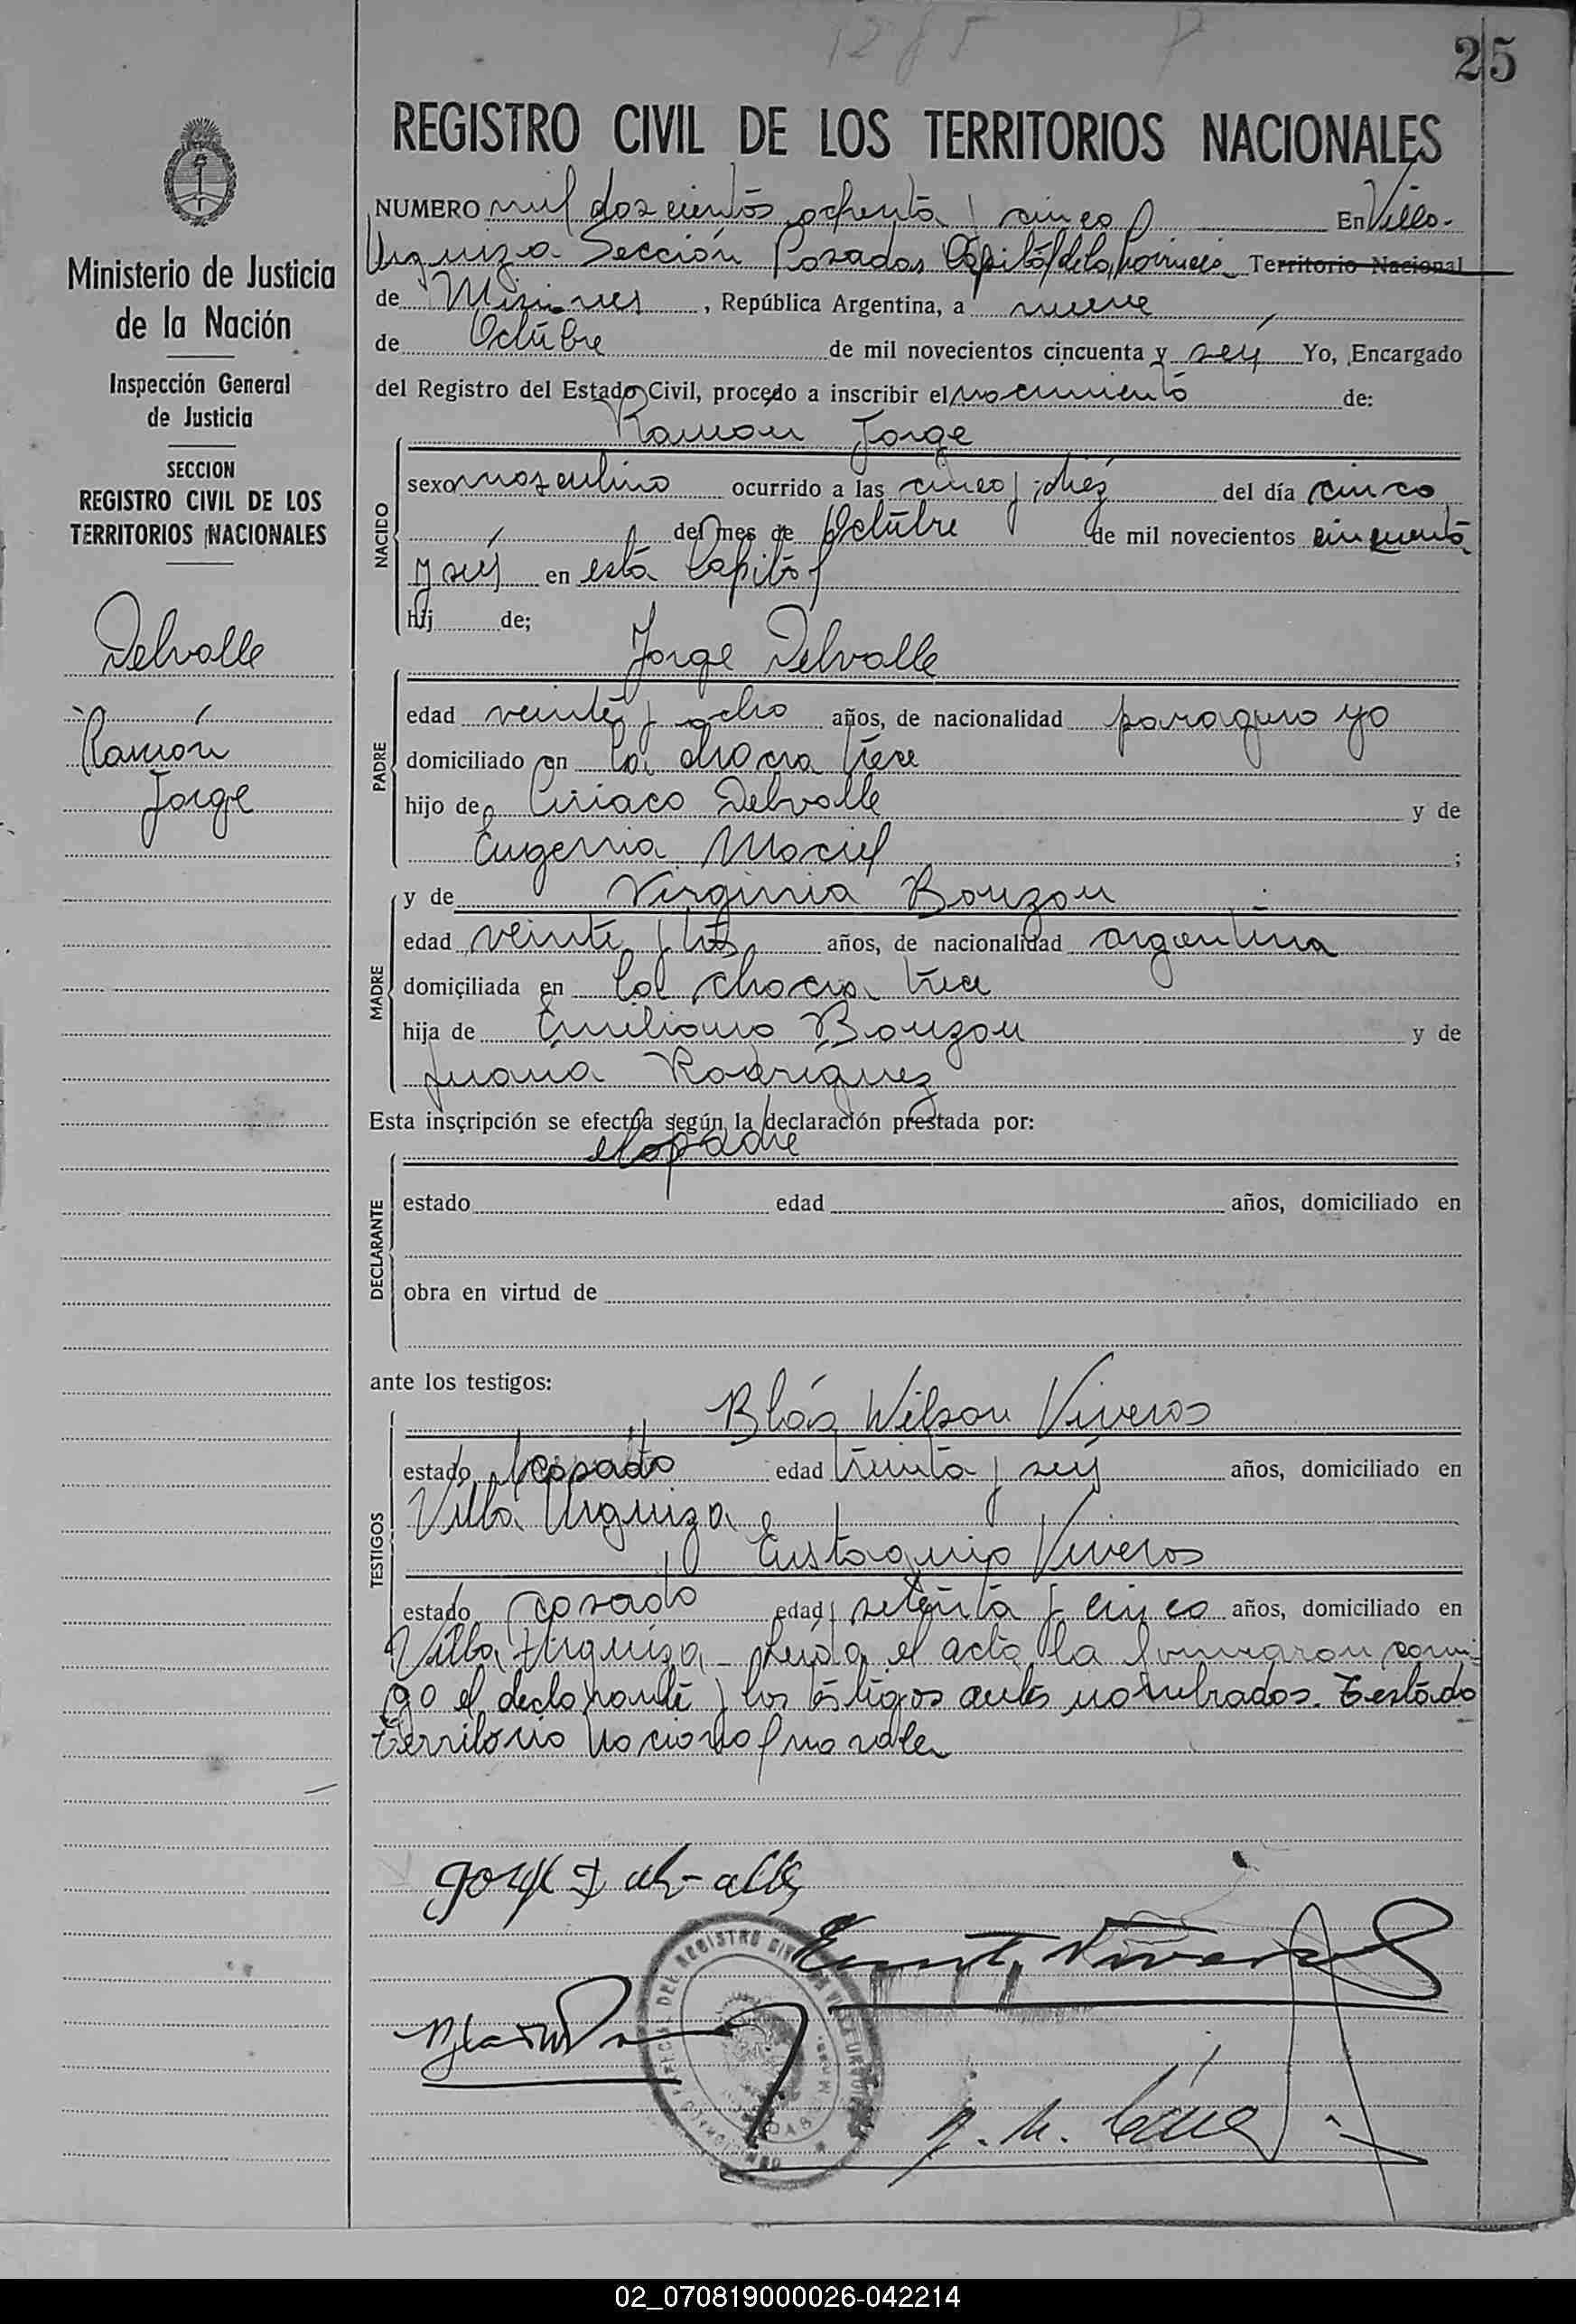 1285
25
REGISTRO CIVIL DE LOS TERRITORIOS NACIONALES
Ministerio de Justicia
de la Nación
Inspección General
de Justicia
SECCION
REGISTRO CIVIL DE LOS
TERRITORIOS NACIONALES
Delvalle
Ramón
Jorge
NUMERO mil doscientos ochenta y cinco En Villa-
Urquiza Sección Posadas Capital de la Provincia Territorio Nacional
de Misiones, República Argentina, a nueve
de Octubre de mil novecientos cincuenta y seis Yo, Encargado
del Registro del Estado Civil, procedo a inscribir el nacimiento de:
NACIDO
Ramon Jorge
sexo masculino ocurrido a las cinco y diez del día cinco
del mes de Octubre de mil novecientos cincuenta
y seis en esta Capital
hij de;
PADRE
Jorge Delvalle
edad veinte y ocho años, de nacionalidad paraguayo
domiciliado en la chacra trece
hijo de Ciriaco Delvalle y de
Eugenia Maciel ;
MADRE
y de Virginia Bouzon
edad veinte y tres años, de nacionalidad argentina
domiciliada en la chacra trece
hija de Emiliano Bouzon y de
Juana Rodriguez
Esta inscripción se efectúa según la declaración prestada por:
DECLARANTE
el padre
estado edad años, domiciliado en
obra en virtud de
ante los testigos:
TESTIGOS
Blás Wilson Viveros
estado casado edad treinta y seis años, domiciliado en
Villa Urquiza
Eustaquio Viveros
estado casado edad setenta y cinco años, domiciliado en
Villa Urquiza - Leida el acta la firmaron conmi-
go el declarante y los testigos antes nombrados. Testado
Territorio Nacional no vale
02_070819000026-042214